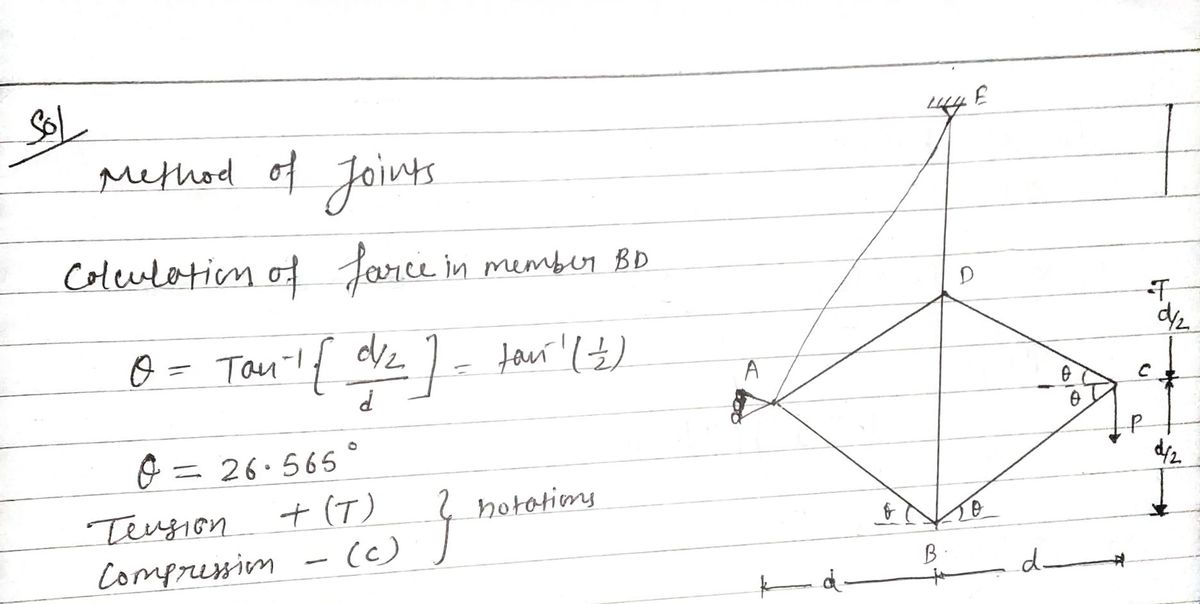 Sol
Method of Joints
Calculation of farce in member BD
θ = Tan⁻¹[ d/2 / d ] = tan⁻¹(1/2)
θ = 26.565°
Tension + (T)
Compression - (C)
} notations
E
D
A
C
B
θ
θ
P
θ
θ
d/2
d/2
d
d